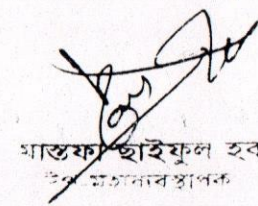 মাস্তফা ছাইফুল হক
উপ-মহাব্যবস্থাপক